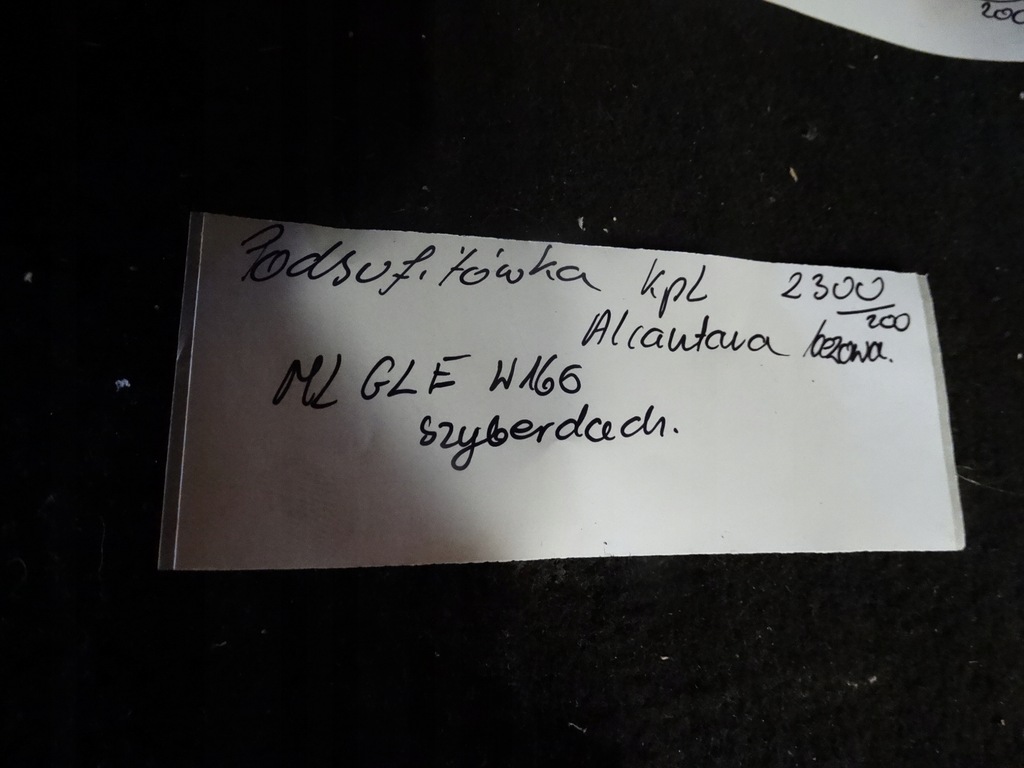 200
Podsufitówka kpl 2300/200
Alcantara beżowa.
ML GLE W166
szyberdach.